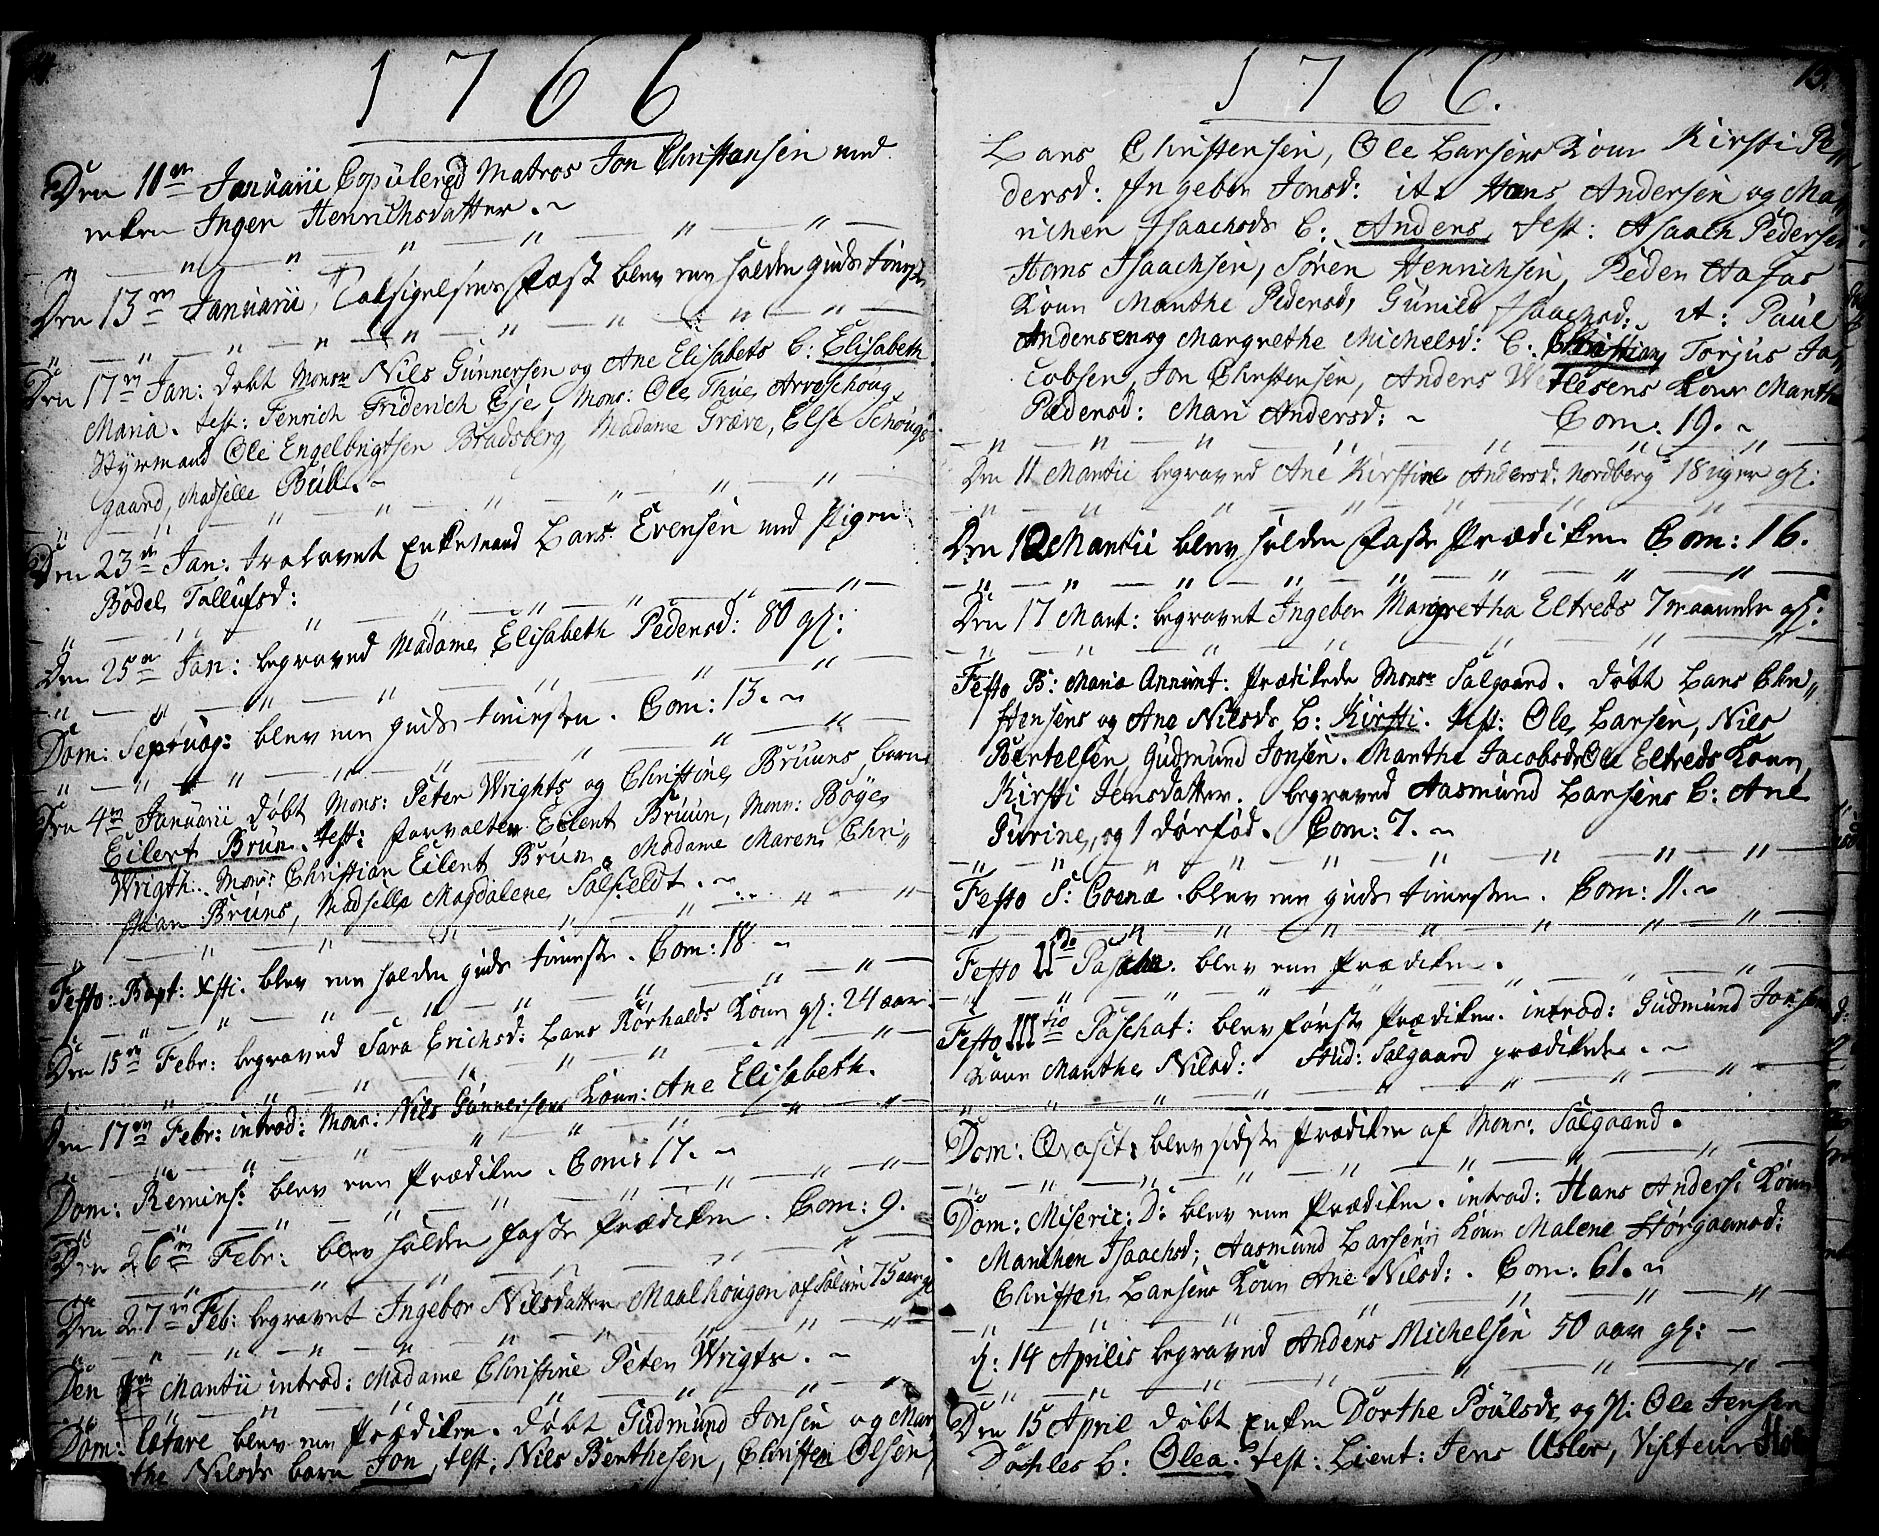 1766
Den 11te Januarii Copulered Matros Jon Christansen med
enken Inger Henrichsdatter. ~
Den 13de Januarii, Taksigelses Fæst blev en holden guds tienest
Den 17de Jan: døbt Monsr Nils Gunnersen og Ane Elisabets b: Elisabeth
Maria. test: Henrich Friderich Eje, Mons: Ole Thue, Arveschoug,
Styrmand Ole Engelbrigtsen Bradsberg, Madame Græve, Else Schouge-
gaard, Madselle Bull. ~
Den 23de Jan: trolovet Enkemand Lars Evensen med Pigen
Bodel Tollufsd:
Den 25de Jan: begraved Madame Elisabeth Pedersd: 80 gl:
Dom: Septuag: blev en guds tienesten. Com: 13. ~
Den 4de Januarii døbt Mons: Peter Wrights og Christine Bruuns barn
Eilert Brun. test: forvalter Eilert Bruun, Monsr: Böge
Wrigth. Mons: Christian Eilert Brun. Madame Maren Chri-
stian Bruns, Madselle Magdalene Salfeldt. ~
Festo: Bapt: Xsti. blev en holden guds tieneste. Com: 18 ~
Den 15de Febr: begraved Sara Erichsd: Lars Rörholds Kone gl: 24 aar.
Den 17de Febr: introd: Mons: Nils Gunnersens Kone: Ane Elisabeth.
Dom: Reminis: blev en Prædiken. Com: 17. ~
Den 26de Febr: blev holden faste Prædiken. Com: 9.
Den 27de Feb: begravet Ingebor Nilsdatter Maalhougen af Solum 75 aar gl
Den Martii introd: Madame Christine Peter Wrigts. ~
Dom: Lætare blev en Prædiken. døbt Gudmund Jonsen og Mar
the Nilsds barn Jon, test: Nils Berthesen, Christen Olsen,
1766.
15.
Lars Christensen, Ole Larsens Kone Kirsti Pe-
dersd: Ingebor Jonsd: it. Hans Andersen og Ma-
richen Isaachsds b: Anders, test: Isaach Pedersen
Hans Isaachsen, Sören Henrichsen, Peder Hafas
Kone Marthe Pedersd, Gunild Isaachsd: it: Paul
Andersen og Margrethe Michelsd: b. Christian, Torjus Ja-
cobsen, Jon Christensen, Anders Wetlesens Kone Marthe
Pædersd: Mari Andersd: ~ Com: 19. ~
Den 11 Martii begraved Ane Kirstine Andersd: Nordberg 18 uger gl:
Den 12 Martii blev holden Faste Prædiken Com: 16.
Den 17 Mart: begravet Ingebor Margretha Eltreds 7 maaneder gl:
Festo B: Maria Annunt: Prædikede Monsr Salgaard. døbt Lars Chri-
stensens og Ane Nilsds b: Kirsti. test: Ole Larsen, Nils
Bertelsen, Gudmund Jonsen. Marthe Jacobsds Ole Eltreds Kone
Kirsti Jensdatter. begraved Aasmund Larsens b: Ane
Gurine, og 1 dørfød. Com: 7. ~
Festo S: Coenæ. blev en guds tienesten. Com: 11. ~
Festo IIdo Paschæ. blev en Prædiken.
Festo IIItio Paschat: blev første Prædiken. introd: Gudmund Jonsens
Kone Marthe Nilsd: Stud: Salgaard prædikede. ~
Dom: Qvasit: blev sidste Prædiken af Monsr: Salgaard.
Dom: Miseric: D: blev en Prædiken. introd: Hans Anders: Kone
Marichen Isaachsd; Aasmund Larsens Kone Malene Störgaarsd:
Christen Larsens Kone Ane Nilsd: . Com: 61. ~
d: 14 Aprilis begraved Anders Michelsen 50 aar gl: —
Den 15 April døbt Enken Dorthe Poulsds og Sl: Ole Jensen
Døhles b: Olea. test: Lieut: Jens Usler, Visiteur